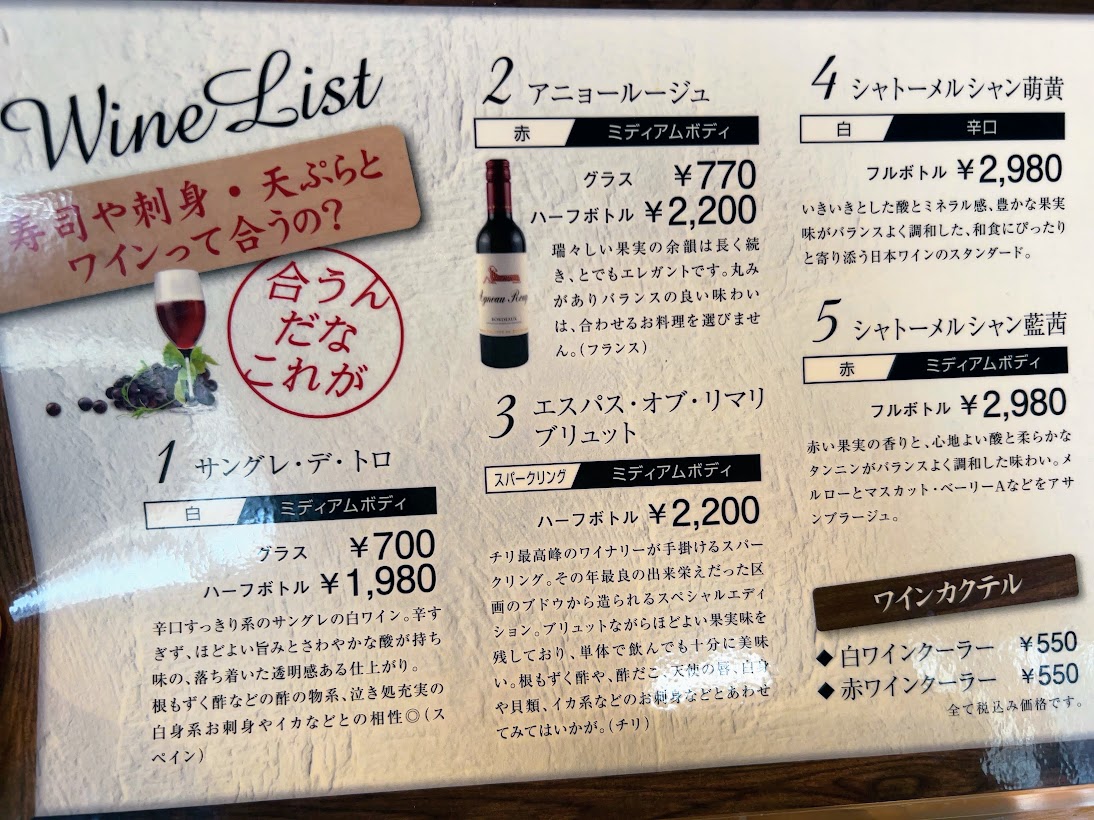 Wine List
寿司や刺身・天ぷらと
ワインって合うの？
合うん
だな
これが
1 サングレ・デ・トロ
白 ミディアムボディ
グラス ￥700
ハーフボトル ￥1,980
辛口すっきり系のサングレの白ワイン。辛す
ぎず、ほどよい旨みとさわやかな酸が持ち
味の、落ち着いた透明感ある仕上がり。
根もずく酢などの酢の物系、泣き処充実の
白身系お刺身やイカなどとの相性◎（ス
ペイン）
2 アニョールージュ
赤 ミディアムボディ
グラス ￥770
ハーフボトル ￥2,200
瑞々しい果実の余韻は長く続
き、とてもエレガントです。丸み
がありバランスの良い味わい
は、合わせるお料理を選びませ
ん。（フランス）
BORDEAUX
3 エスパス・オブ・リマリ
ブリュット
スパークリング ミディアムボディ
ハーフボトル ￥2,200
チリ最高峰のワイナリーが手掛けるスパー
クリング。その年最良の出来栄えだった区
画のブドウから造られるスペシャルエディ
ション。ブリュットながらほどよい果実味を
残しており、単体で飲んでも十分に美味し
い。根もずく酢や、酢だこ、天使の唇、白身
や貝類、イカ系などのお刺身などとあわせ
てみてはいかが。（チリ）
4 シャトーメルシャン萌黄
白 辛口
フルボトル ￥2,980
いきいきとした酸とミネラル感、豊かな果実
味がバランスよく調和した、和食にぴったり
と寄り添う日本ワインのスタンダード。
5 シャトーメルシャン藍茜
赤 ミディアムボディ
フルボトル ￥2,980
赤い果実の香りと、心地よい酸と柔らかな
タンニンがバランスよく調和した味わい。メ
ルローとマスカット・ベーリーAなどをアサ
ンブラージュ。
ワインカクテル
◆白ワインクーラー ￥550
◆赤ワインクーラー ￥550
全て税込み価格です。